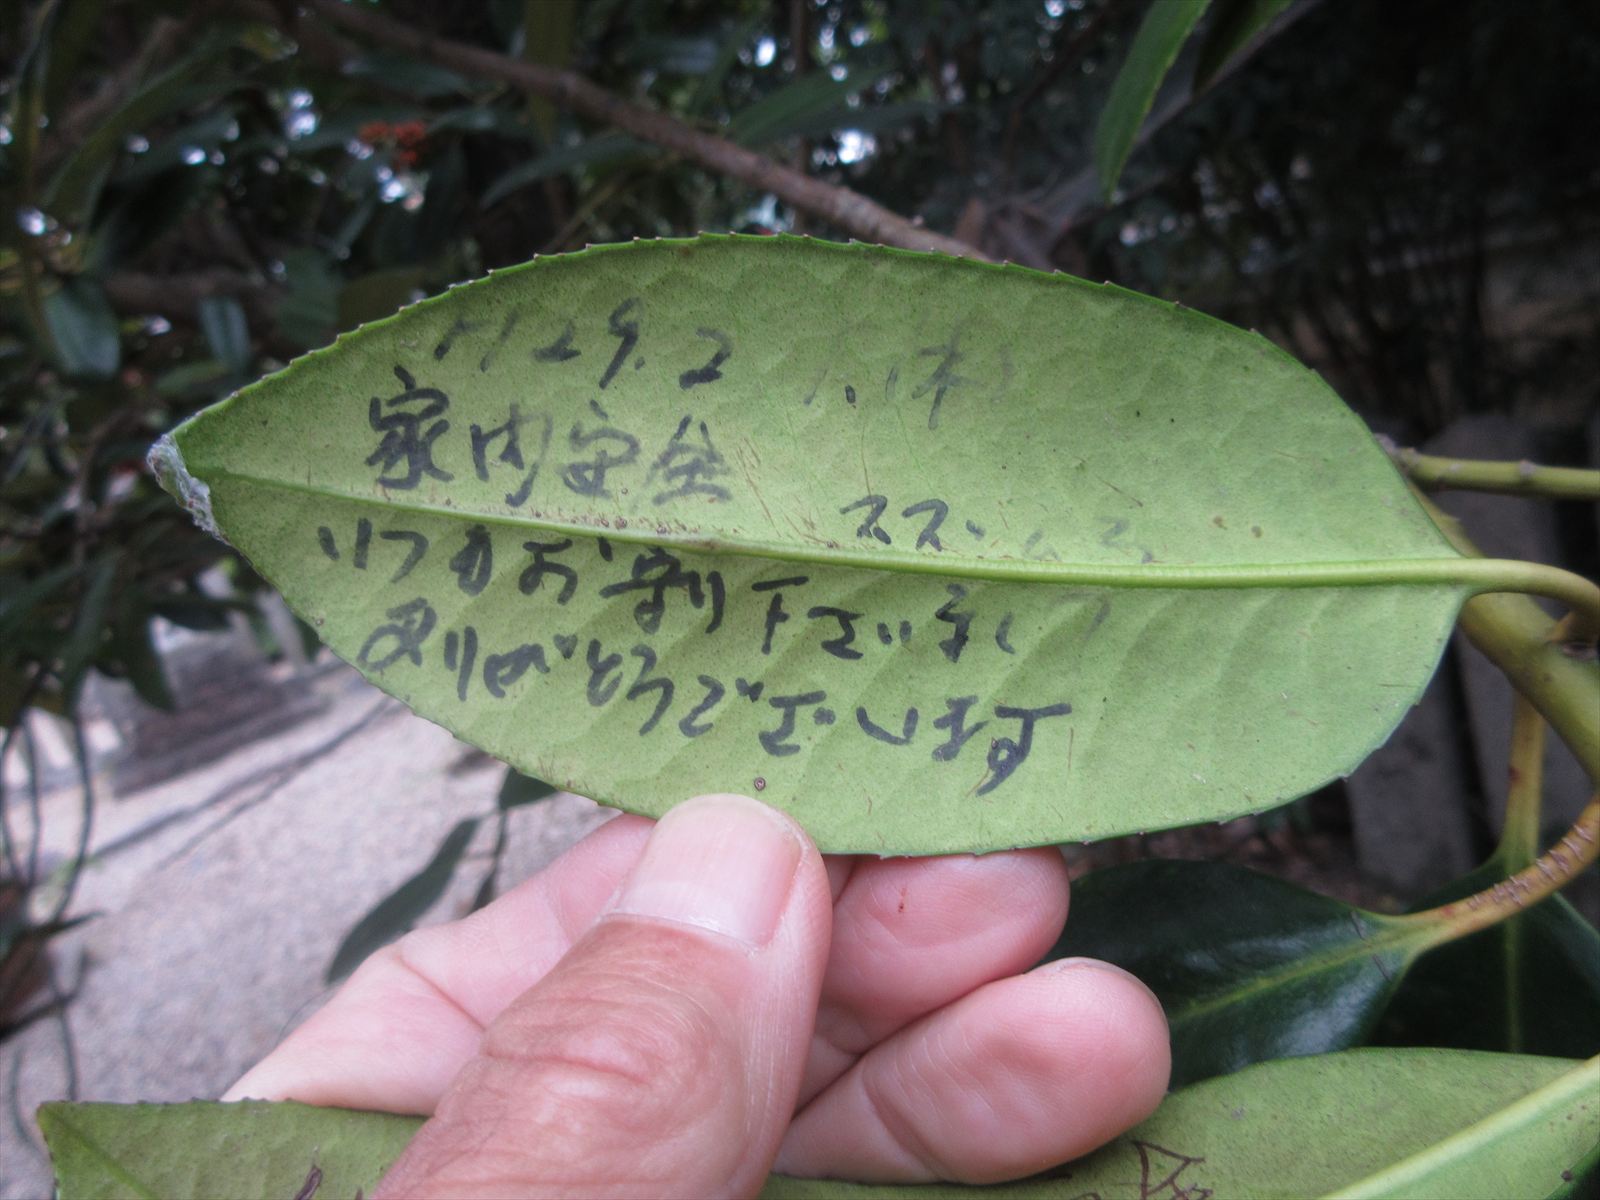 H29.2 1.(木)
家内安全
ススム
いつかお守り下さいまして
ありがとうございます